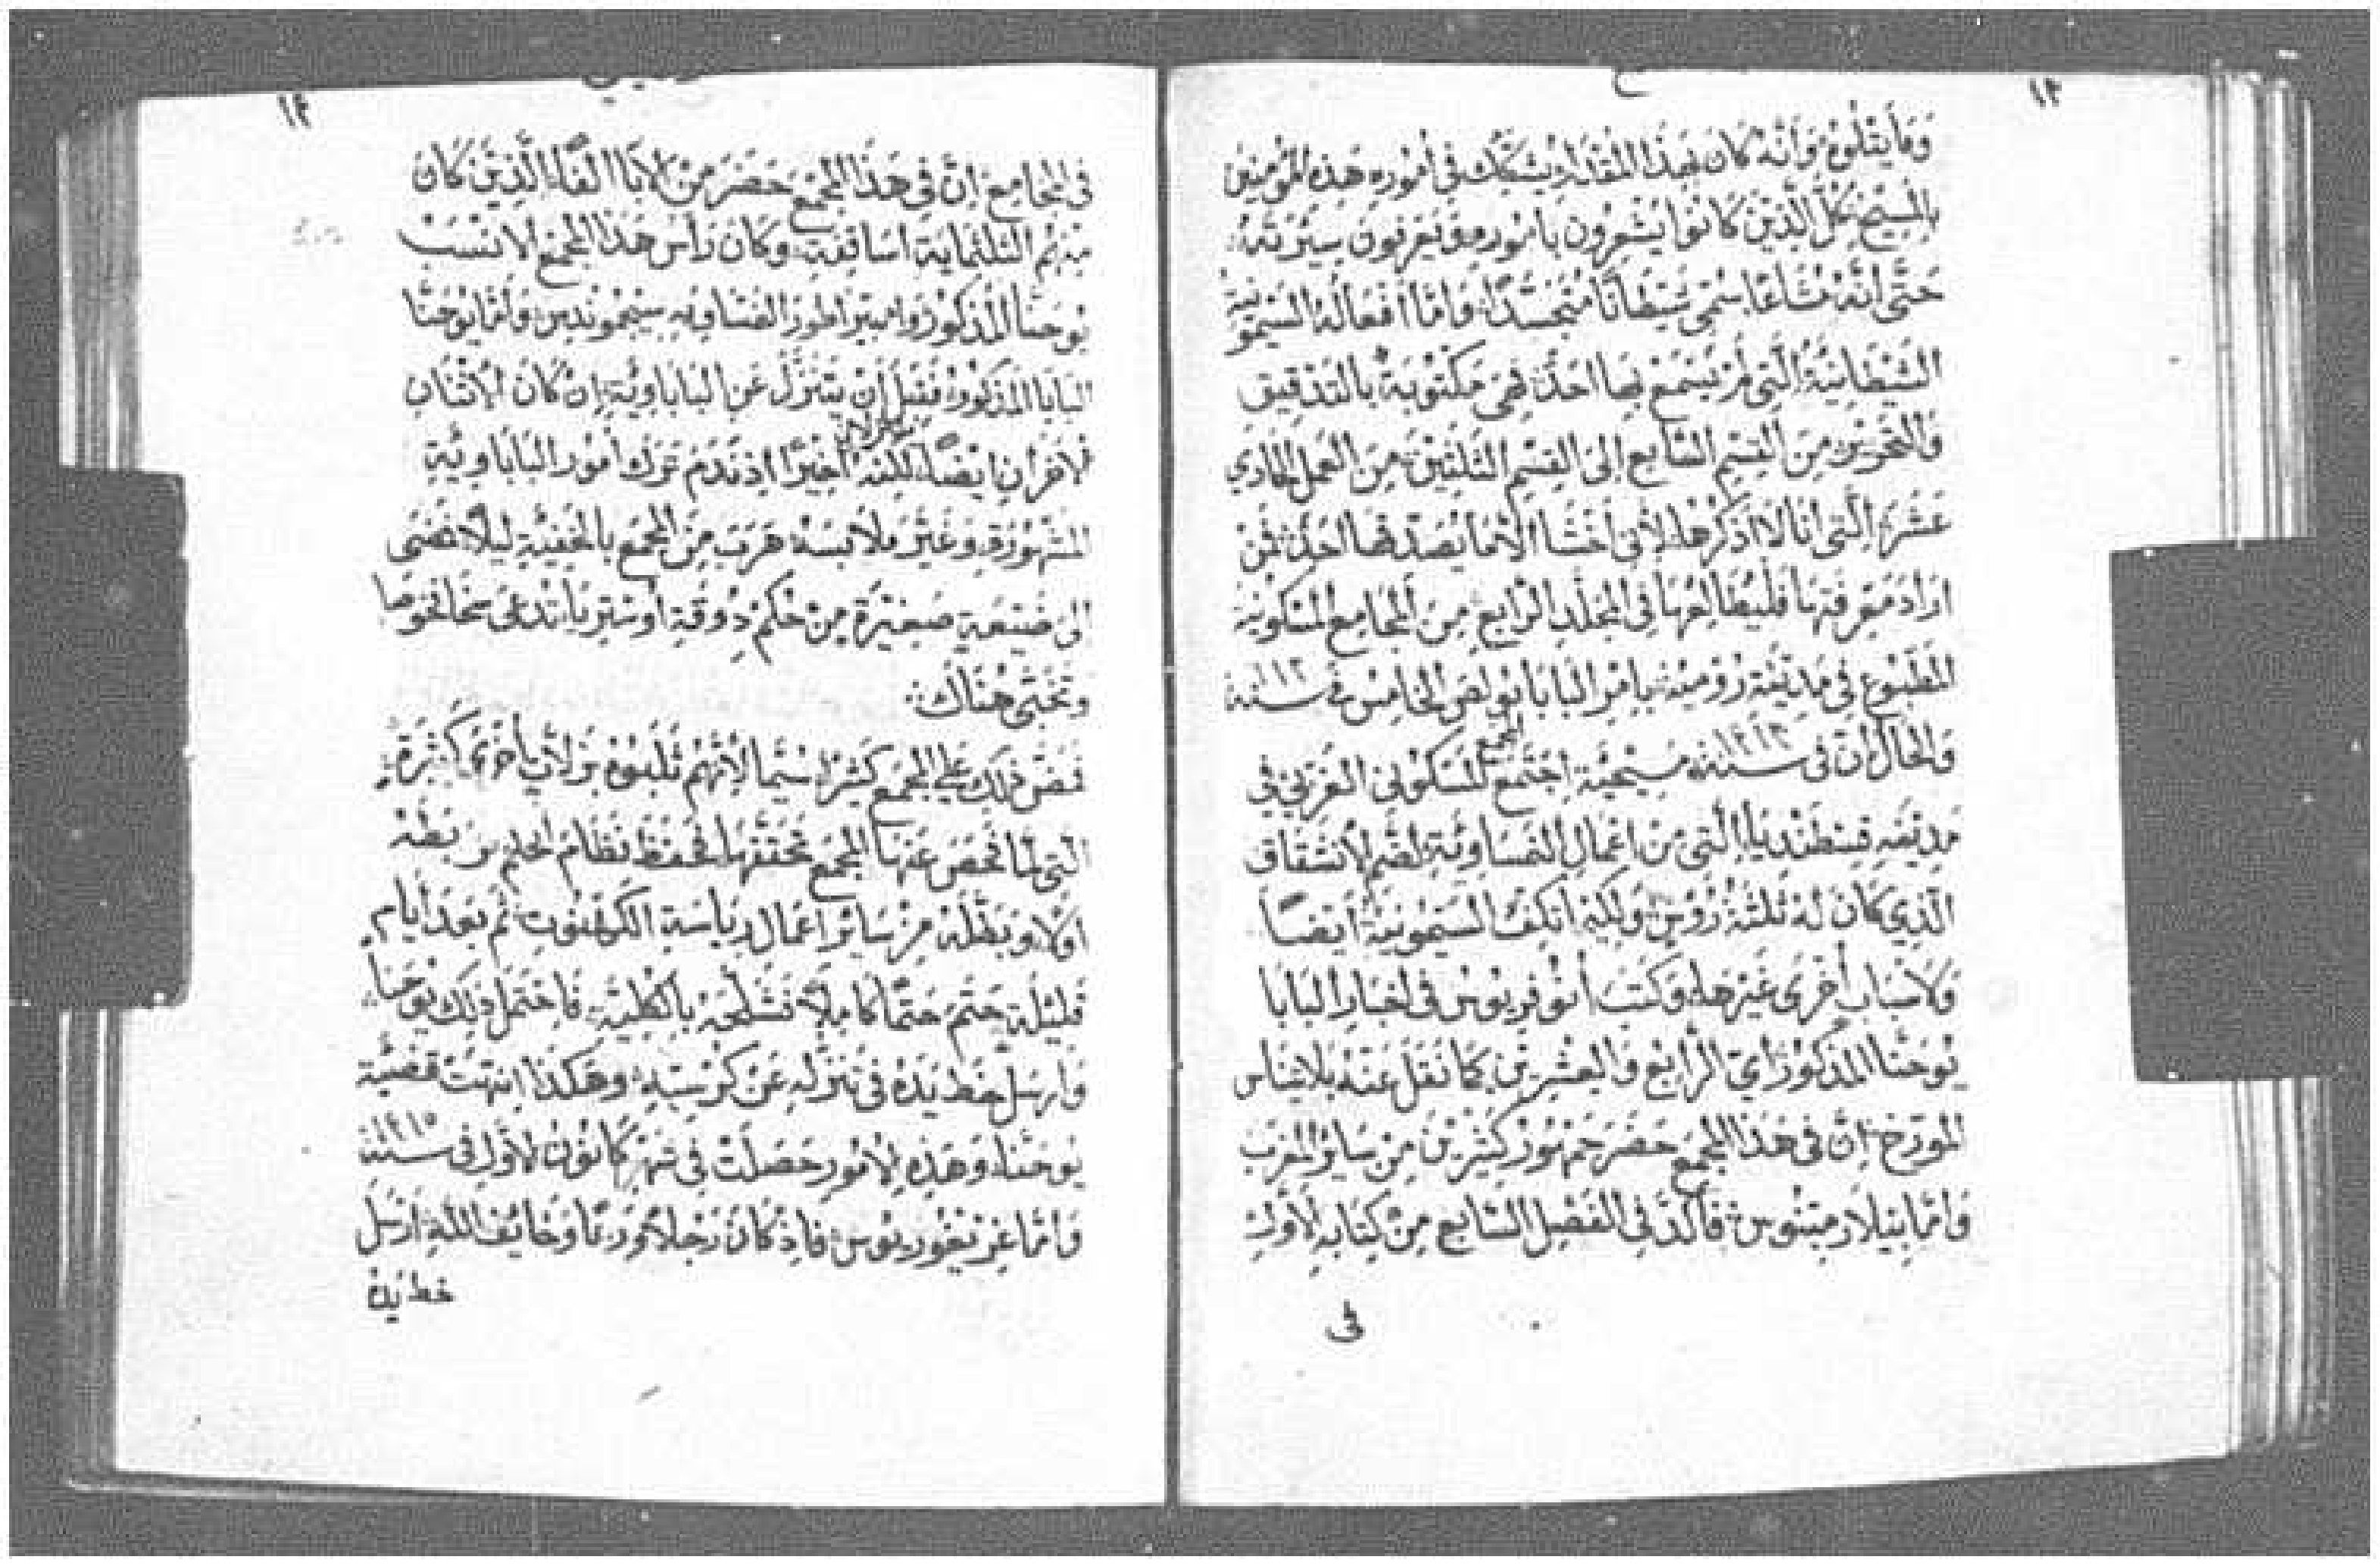 ١٢
وَمَا يَتْلُوهْ وَأَنَّهُ كَانَ بِهَذَا المُقْدَارِ يُشَكِّك فِى أُمُورِه هَذِهِ المُؤْمِنِينَ
بِالْمَسِيْحِ بَكُلِّ الَّذِيْنَ كَانُوا يَشْعِرُون بِامُورِهِ وَيَعْرِفُونَ سِيْرَتَهُ
حَتَّى انَّهُ مُشَاعًا سُمِّى شَيْطَانًا مُتَجَسِّدًا وَامَّا أَفْعَالَهُ السَّيْمُونِيَّة
الشَّيْطَانِيَّةُ الَّتِى لَمْ يَسْمَعْ بِهَا احَدٌ فَهِىَ مَكْتُوبَةٌ بِالتَدْقِيقِ
وَالتَحْرِيْرِ مِنَ القِسْمِ السَّابِعِ إِلَى القِسْمِ الثَلثِيْنَ مِنَ العَمَلِ الحَادِي
عَشَرَ الَّتِى أَنَا لَا اذْكُرُهَا لِأَنِّى أَخْشَا الاَّ مَا يُصَدِّقُهَا أحَدٌ فَمَنْ
ارَادَ مَعْرِفَتِهَا فَلْيُطَالِعْهَا فِى المُجَلَّدِ الرَّابِعِ مِنَ المَجَامِعِ المَسْكُونِيَّة
المَطْبُوعِ فِى مَدِيْنَةِ رُوْمِيَة بِامْرِ البَابَا بُولُصَ الخَامِسِ فى سنة
وَالحَالُ أَنَّ فِى سنة مَسِيْحِيَّة اجْتَمَعَ المجمع المَسْكُونِى الغَرْبِي فِى
مَدِيْنَةِ قِسْطَنْدِيَا الَّتِى مِنْ اعْمَالِ النَمْسَاوِيَّةِ لِضَمِّ الاِنْشِقَاقِ
الَّذِي كَانَ لَهُ ثَلثَةُ رُؤُسٍ وَلَكِنْ السَيْمُونِيَّةْ أَيْضًا
وَلاَسْبَابٍ أُخْرَى غَيْرَهَا وَكَتَبَ أُنُوفْرِيُوسْ فِى اخْبَارِ البَابَا
يُوحَنَّا المَذْكُورْ أيْ الرَّابِع وَالعِشْرِيْن كَمَا نَقَلَ عَنْهُ بَلَاتِينَاس
المُورِّخ إنَّ فِى هَذَا المَجْمَعِ حَضَرَ جَمْهُورٌ كَثِيْرِيْنَ مِنْ سَايِرِ المَغْرِب
وَامَّا فَاكَّدَ فِى الفَصْلِ السَّابِعِ مِنْ كِتَابِهِ الاَوَّلِ
فى
١٣
فِى المَجَامِعِ إنَّ فِى هَذَا المَجْمَعِ حَضَرَ مِنَ الآبَا الَّذِيْنَ كَانَ
مِنْهُم الثَلثُمَايَة اسَاقِفَة وَكَانَ رَأسَ هَذَا المَجْمَعِ
يُوحَنَّا المَذْكُورْ وَامْبِيْرَاطُورَ النَمْسَاوِيَّه وَأَمَّا يُوحَنَّا
البَابَا المَذْكُورْ فَقَبِلَ أنْ يَتَنَزَّلَ عَنِ البَابَاوِيَّةِ إِنْ كَانَ الاِثْنَانِ
الاخَرَانِ ايْضًا لَكِنَّهُ أخِيْرًا اذْ نَدِمَ تَرَكَ أُمُورَ البَابَاوِيَّةِ
المَشْهُورَةِ وَغَيَّرَ مَلاَبِسَهُ هَرَبَ مِنَ المَجْمَعِ بِالخُفْيَةِ لَيْلًا فَمَضَى
الى ضَيْعَةٍ صَغِيْرَةٍ مِنْ حُكْمِ دُوقَةِ اوسْتِرِيَا تُدْعَى
وَتَخَبَّى هُنَاكَ
فَضَرَّ ذَلِكَ عَلى المَجْمَعِ كَثِيْرًا سِيَّمَا لِأَنَّهُمْ ثَلَبُوهُ بِزَلاَّتٍ أُخْرَى كَثِيْرَةٍ
الَّتِى لَمَّا فَحَصَ عَنْهَا المَجْمَعُ تَحَقَّقَهَا فَحَفِظَ نِظَامَ
اوَّلًا وَبَطَّلَهُ مِنْ سَايِرِ اعْمَالِ رِيَاسَةِ الكَهَنُوتِ ثُمَّ بَعْدَ أيَّام
قَلِيْلَة حَتَمَ حَتْمًا كَامِلًا فَشَلَحَهُ بِالكُلِّيَّةِ فَاحْتَمَلَ ذَلِكَ يُوحَنَّا
وَارسَلَ خَطَّ يَدَهُ فِى تَنَزُّلِهِ عَنْ كُرْسِيِّهِ وَهَكَذَا انتَهَتْ قَضِيَّة
يُوحَنَّا وَهَذِهِ الاُمُور حَصَلَتْ فِى شَهْرِ كَانُونَ الاَوَّلِ فى سنة ١٤١٥
وَامَّا غْرِيْغُورِيُوس فَاذْ كَانَ رَجُلًا وَخَايِفَ اللَّهِ أرْسَلَ
خط يَدهُ